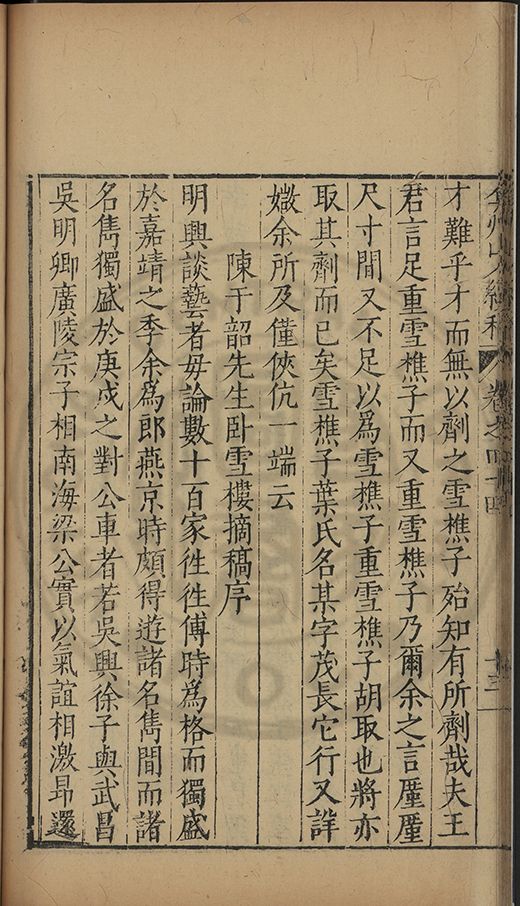 弇州山人續稿 卷之四十四 十三
才難乎才而無以劑之雪樵子殆知有所劑哉夫王
君言足重雪樵子而又重雪樵子乃爾余之言厪厪
尺寸間又不足以爲雪樵子重雪樵子胡取也將亦
取其劑而已矣雪樵子葉氏名某字茂長它行又詳
媺余所及僅俠伉一端云
陳于韶先生卧雪樓摘稿序
明興談藝者毋論數十百家徃徃傅時爲格而獨盛
於嘉靖之季余爲郎燕京時頗得遊諸名雋間而諸
名雋獨盛於庚戌之對公車者若吳興徐子與武昌
吳明卿廣陵宗子相南海梁公實以氣誼相激昻還